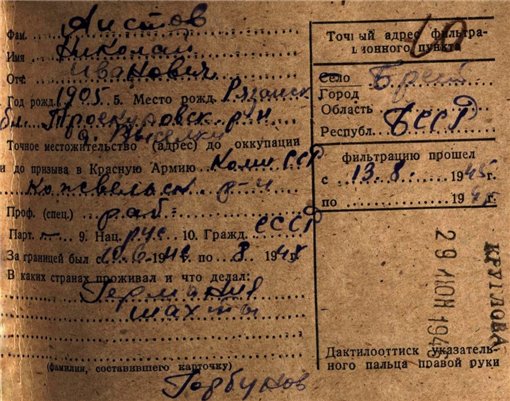 Фам. Аистов
Имя Николай
Отч. Иванович
Год рожд. 1905 5. Место рожд. Рязанск
обл. Проскуровск. р-н
д. Выселки
Точное местожительство (адрес) до оккупации
и до призыва в Красную Армию Коми ССР
р-н
Проф. (спец.) раб.
Парт. – 9. Нац. рус 10. Гражд. СССР
За границей был 194 по 8 1945
В каких странах проживал и что делал:
Германия
шахты
(фамилия, составившего карточку)
Горбунов
10
Точный адрес фильтра-
ционного пункта
Село Брест
Город
Область
Республ. БССР
фильтрацию прошел
с 13.8. 1945 г.
по 194 г.
29 ИЮН 1946
КРУГЛОВА
Дактилооттиск указатель-
ного пальца правой руки